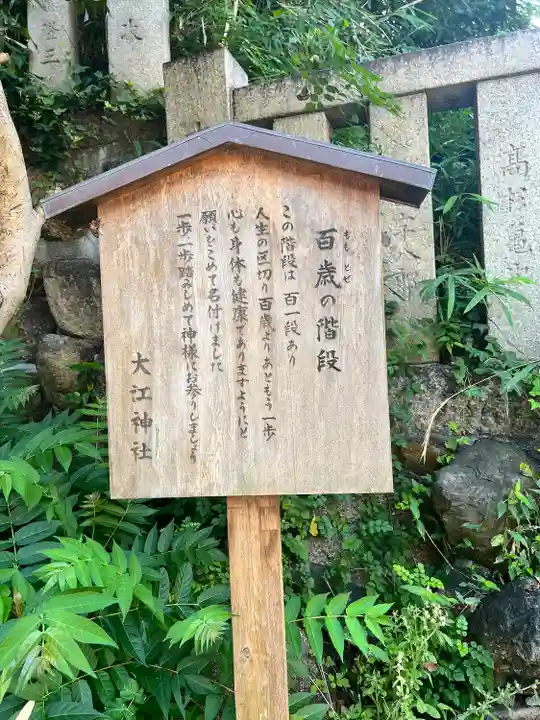 百歳の階段
ももとせ
この階段は 百一段あり
人生の区切り百歳より あともう一歩
心も身体も健康でありますようにと
願いをこめて名付けました
一歩一歩踏みしめて神様にお参りしましょう
大江神社